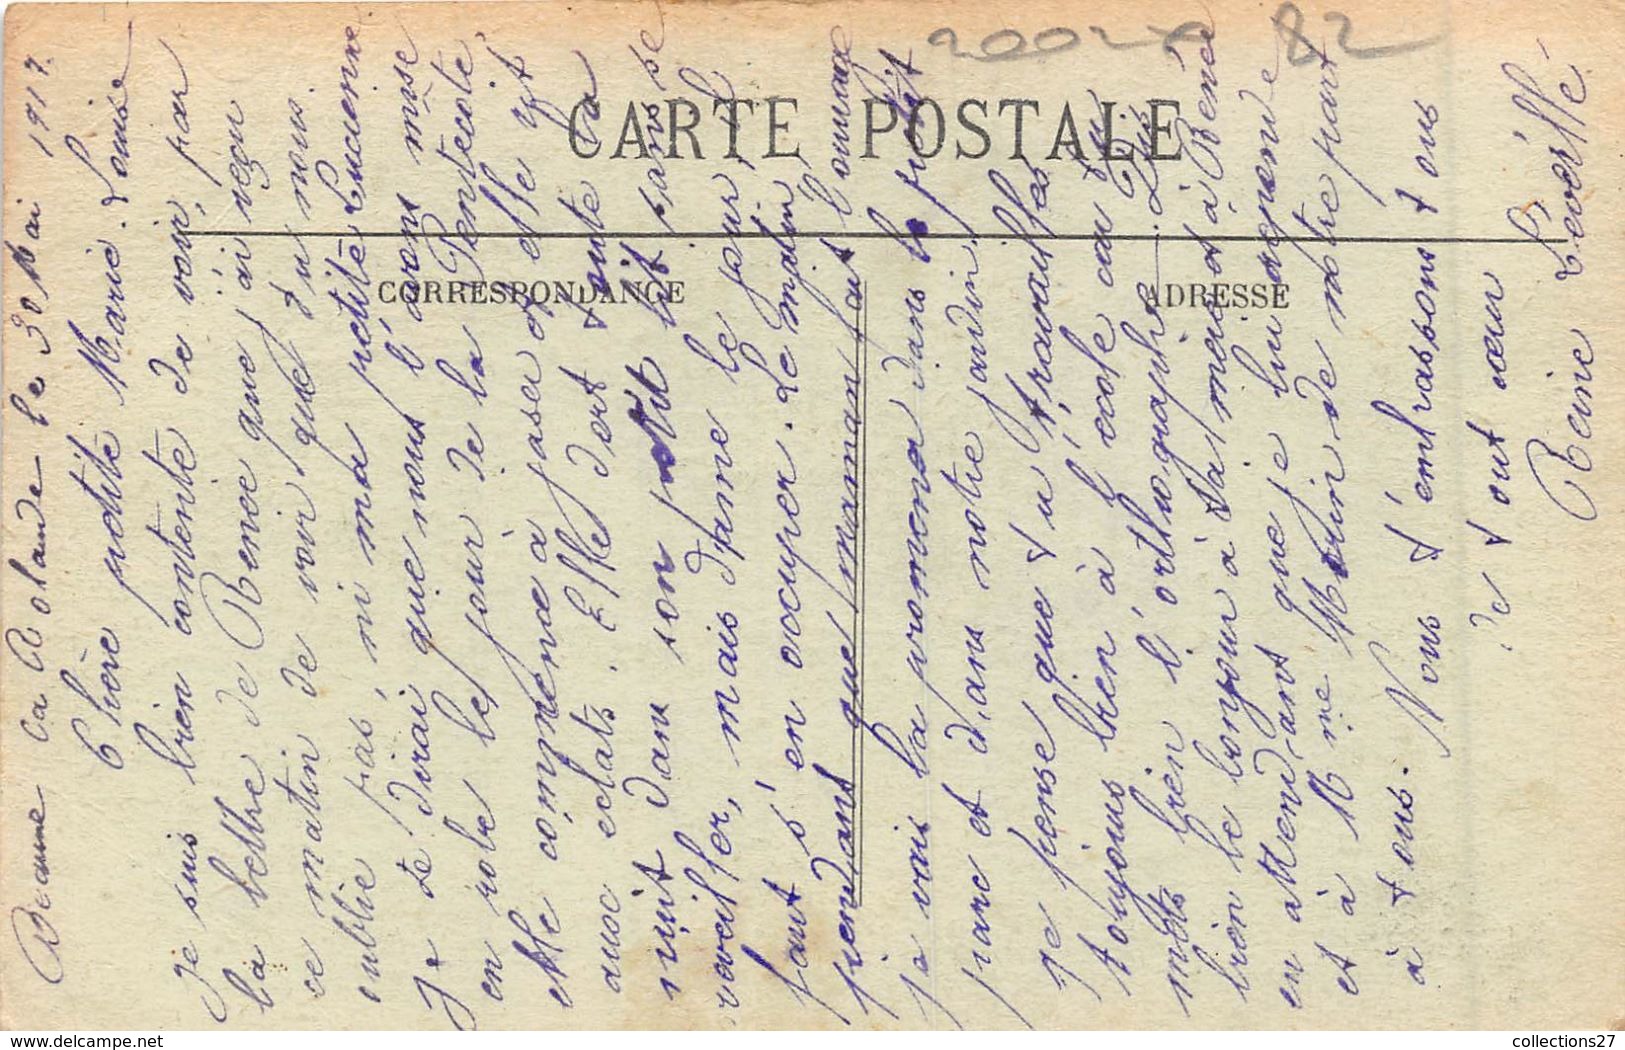 Beaune la Rolande le 30 Mai 1917.
Chère petite Marie-Louise
Je suis bien contente de voir, par
la lettre de Renée que j'ai reçu
ce matin de voir que tu nous
oublie pas, ni ma petite Lucienne
Je te dirai que nous l'avons mise
en robe le jour de la Pentecôte,
elle commence à jaser et elle rit
aux eclats. Elle dort toute la
nuit dans son petit lit sans se
reveiller, mais dame le jour il
faut s'en occuper. Le matin,
pendant que maman fait l'ouvrage
je vais la promener dans le petit
parc et dans notre jardin.
je pense que tu travailles
toujours bien à l'école ou tu
mets bien l'orthographe. Dis
bien le bonjour à ta mère et à Renée
en attendant que je lui réponde
et à Mme Morin de notre part
à tous. Nous t'embrassons tous
de tout cœur
Reine Léveillé
CARTE POSTALE
CORRESPONDANCE
ADRESSE
82
collections27